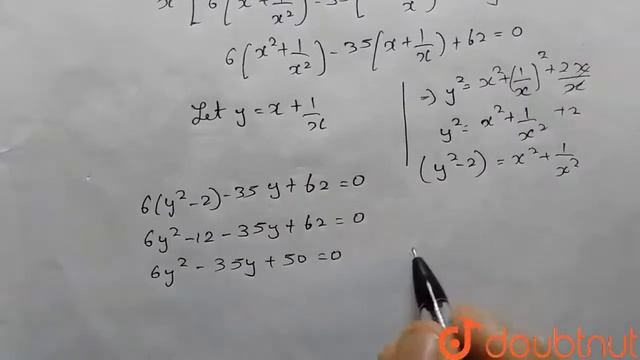 x² [ 6 ( x² + 1/x² ) - 35 ( x
6(x²+1/x²) - 35(x+1/x) + 62 = 0
Let y = x + 1/x
⇒ y² = x² + (1/x)² + 2x/x
y² = x² + 1/x² + 2
(y²-2) = x² + 1/x²
6(y²-2) - 35y + 62 = 0
6y² - 12 - 35y + 62 = 0
6y² - 35y + 50 = 0
doubtnut